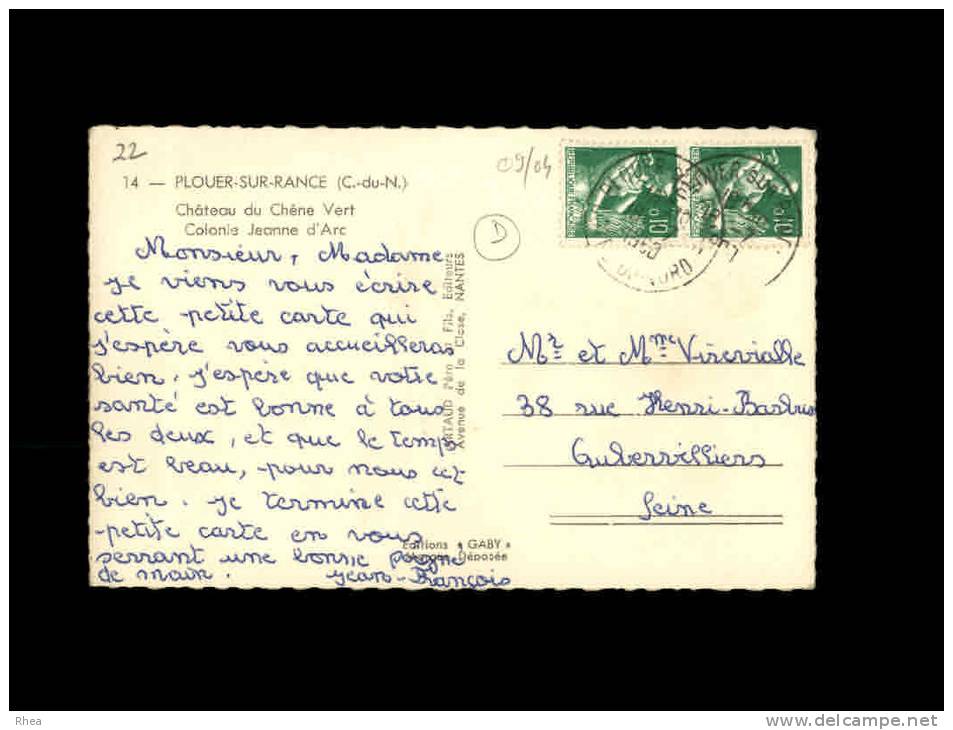 22
14 — PLOUER-SUR-RANCE (C.-du-N.)
Château du Chêne Vert
Colonie Jeanne d'Arc
Monsieur, Madame
je viens vous écrire
cette petite carte qui
j'espère vous accueilleras
bien. j'espère que votre
santé est bonne à tous
les deux, et que le temps
est beau, pour nous
bien. je termine cette
petite carte en vous
serrant une bonne poigne
de main. Jean-François
ARTAUD Père et Fils, Editeurs
Avenue de la Close, NANTES
Editions « GABY »
Marque Déposée
09/04
D
0f10
0f10
PLOUER-SUR-
DU-NORD
Mr et Mme Virevialle
38 rue Henri-Barbus
Aubervilliers
Seine
Rhea
www.delcampe.net